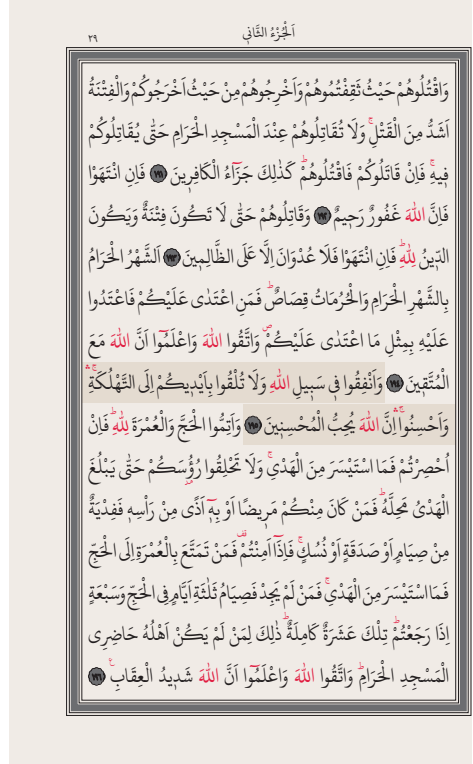 اَلْجُزْءُ الثَّانٖي
٢٩
وَاقْتُلُوهُمْ حَيْثُ ثَقِفْتُمُوهُمْ وَاَخْرِجُوهُمْ مِنْ حَيْثُ اَخْرَجُوكُمْ وَالْفِتْنَةُ
اَشَدُّ مِنَ الْقَتْلِۚ وَلَا تُقَاتِلُوهُمْ عِنْدَ الْمَسْجِدِ الْحَرَامِ حَتّٰى يُقَاتِلُوكُمْ
فٖيهِۚ فَاِنْ قَاتَلُوكُمْ فَاقْتُلُوهُمْؕ كَذٰلِكَ جَزَٓاءُ الْكَافِرٖينَ ﴿١٩١﴾ فَاِنِ انْتَهَوْا
فَاِنَّ اللّٰهَ غَفُورٌ رَحٖيمٌ ﴿١٩٢﴾ وَقَاتِلُوهُمْ حَتّٰى لَا تَكُونَ فِتْنَةٌ وَيَكُونَ
الدّٖينُ لِلّٰهِؕ فَاِنِ انْتَهَوْا فَلَا عُدْوَانَ اِلَّا عَلَى الظَّالِمٖينَ ﴿١٩٣﴾ اَلشَّهْرُ الْحَرَامُ
بِالشَّهْرِ الْحَرَامِ وَالْحُرُمَاتُ قِصَاصٌؕ فَمَنِ اعْتَدٰى عَلَيْكُمْ فَاعْتَدُوا
عَلَيْهِ بِمِثْلِ مَا اعْتَدٰى عَلَيْكُمْࣕ وَاتَّقُوا اللّٰهَ وَاعْلَمُٓوا اَنَّ اللّٰهَ مَعَ
الْمُتَّقٖينَ ﴿١٩٤﴾ وَاَنْفِقُوا فٖي سَبٖيلِ اللّٰهِ وَلَا تُلْقُوا بِاَيْدٖيكُمْ اِلَى التَّهْلُكَةِۚۛ
وَاَحْسِنُواۚۛ اِنَّ اللّٰهَ يُحِبُّ الْمُحْسِنٖينَ ﴿١٩٥﴾ وَاَتِمُّوا الْحَجَّ وَالْعُمْرَةَ لِلّٰهِؕ فَاِنْ
اُحْصِرْتُمْ فَمَا اسْتَيْسَرَ مِنَ الْهَدْيِۚ وَلَا تَحْلِقُوا رُؤُ۫سَكُمْ حَتّٰى يَبْلُغَ
الْهَدْيُ مَحِلَّهُؕ فَمَنْ كَانَ مِنْكُمْ مَرٖيضًا اَوْ بِهٖٓ اَذًى مِنْ رَاْسِهٖ فَفِدْيَةٌ
مِنْ صِيَامٍ اَوْ صَدَقَةٍ اَوْ نُسُكٍۚ فَاِذَٓا اَمِنْتُمْࣞ فَمَنْ تَمَتَّعَ بِالْعُمْرَةِ اِلَى الْحَجِّ
فَمَا اسْتَيْسَرَ مِنَ الْهَدْيِۚ فَمَنْ لَمْ يَجِدْ فَصِيَامُ ثَلٰثَةِ اَيَّامٍ فِي الْحَجِّ وَسَبْعَةٍ
اِذَا رَجَعْتُمْؕ تِلْكَ عَشَرَةٌ كَامِلَةٌؕ ذٰلِكَ لِمَنْ لَمْ يَكُنْ اَهْلُهُ حَاضِرِي
الْمَسْجِدِ الْحَرَامِؕ وَاتَّقُوا اللّٰهَ وَاعْلَمُٓوا اَنَّ اللّٰهَ شَدٖيدُ الْعِقَابِࣖ ﴿١٩٦﴾